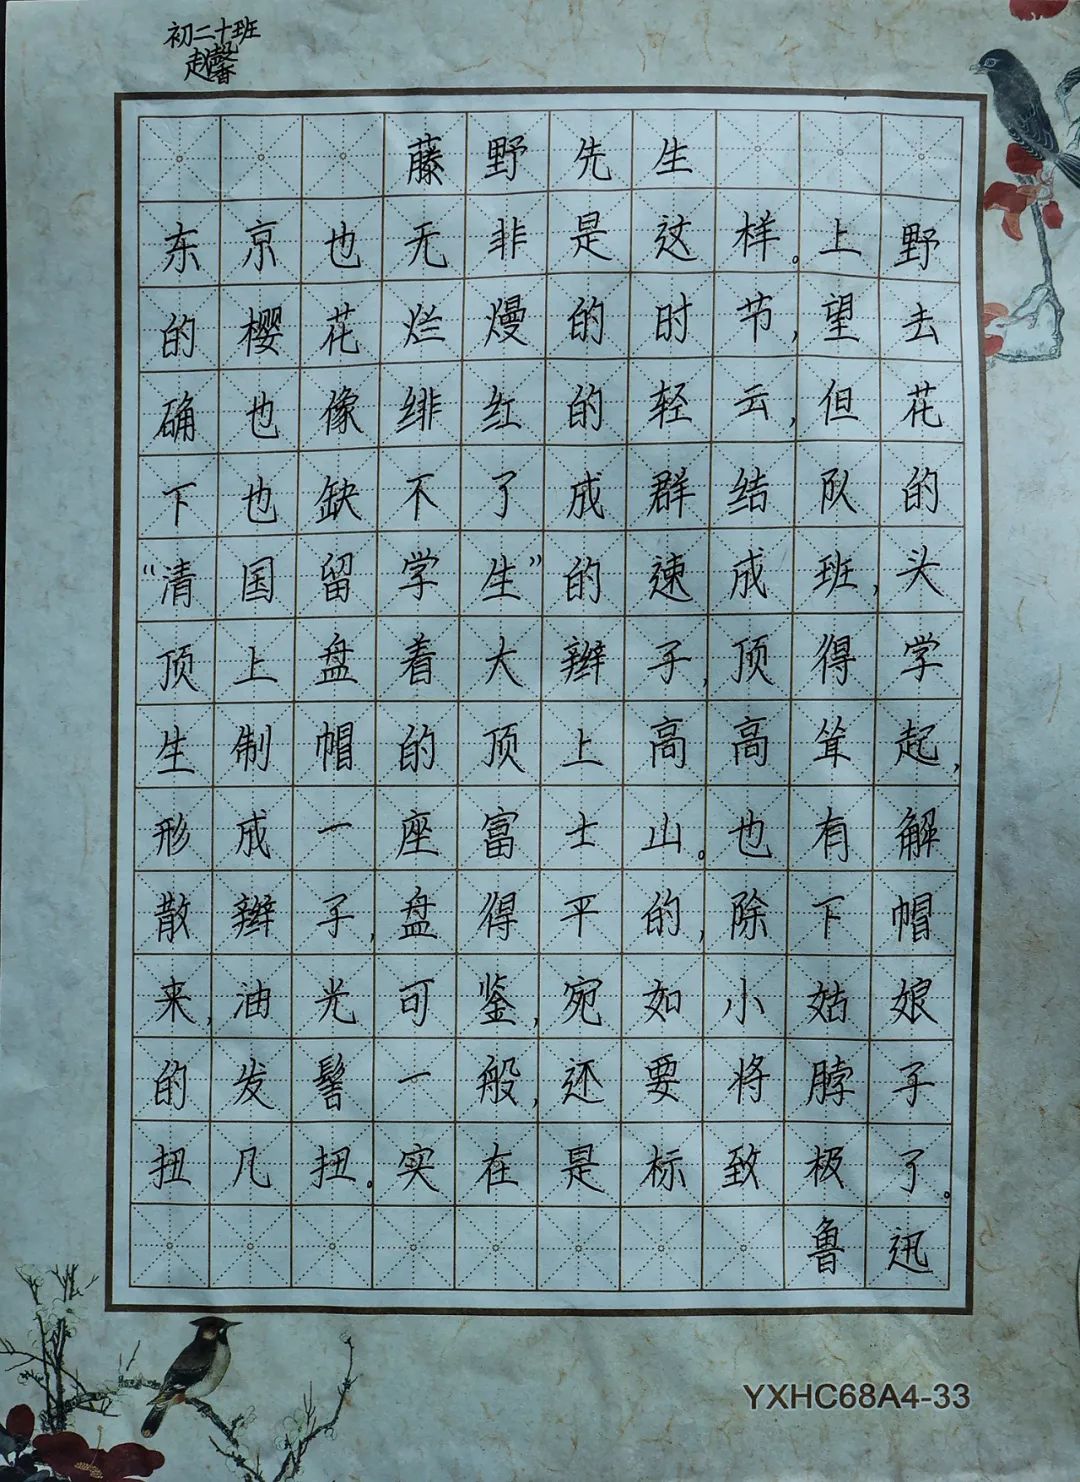 初二十班
赵馨
藤野先生
东京也无非是这样。上野
的樱花烂熳的时节,望去
确也像绯红的轻云,但花
下也缺不了成群结队的
“清国留学生”的速成班,头
顶上盘着大辫子,顶得学
生制帽的顶上高高耸起,
形成一座富士山。也有解
散辫子,盘得平的,除下帽
来,油光可鉴,宛如小姑娘
的发髻一般,还要将脖子
扭几扭。实在是标致极了。
鲁迅
YXHC68A4-33